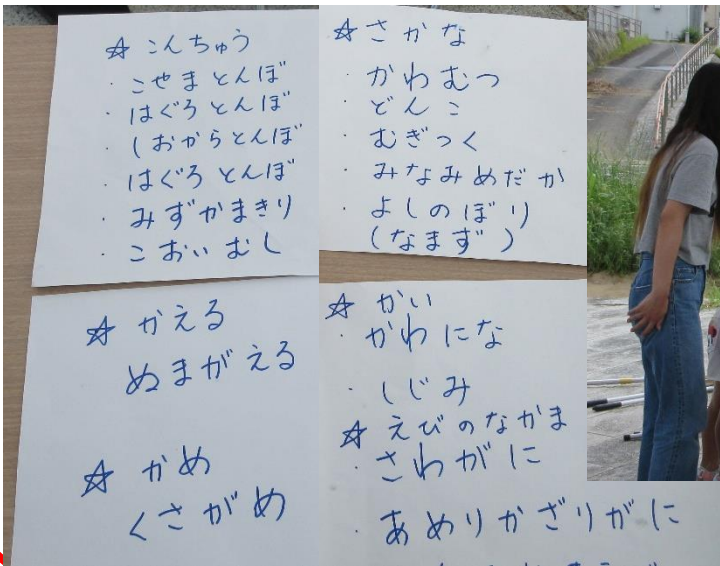 ☆ こんちゅう
・ こやまとんぼ
・ はぐろとんぼ
・ しおからとんぼ
・ はぐろとんぼ
・ みずかまきり
・ こおいむし
☆ さかな
・ かわむつ
・ どんこ
・ むぎつく
・ みなみめだか
・ よしのぼり
(なまず)
☆ かえる
ぬまがえる
☆ かめ
くさがめ
☆ かい
・ かわにな
・ しじみ
☆ えびのなかま
・ さわがに
・ あめりかざりがに